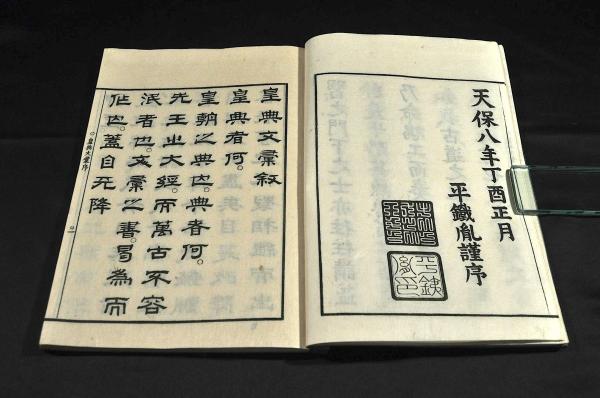 天保八年丁酉正月
平鐵胤謹序
平銕胤印
皇典文彙叙
皇典者何。
皇朝之典也。典者何。
先王之大經。而萬古不容
泯者也。文彙之書。曷為而
作也。蓋自天降
皇典文彙序